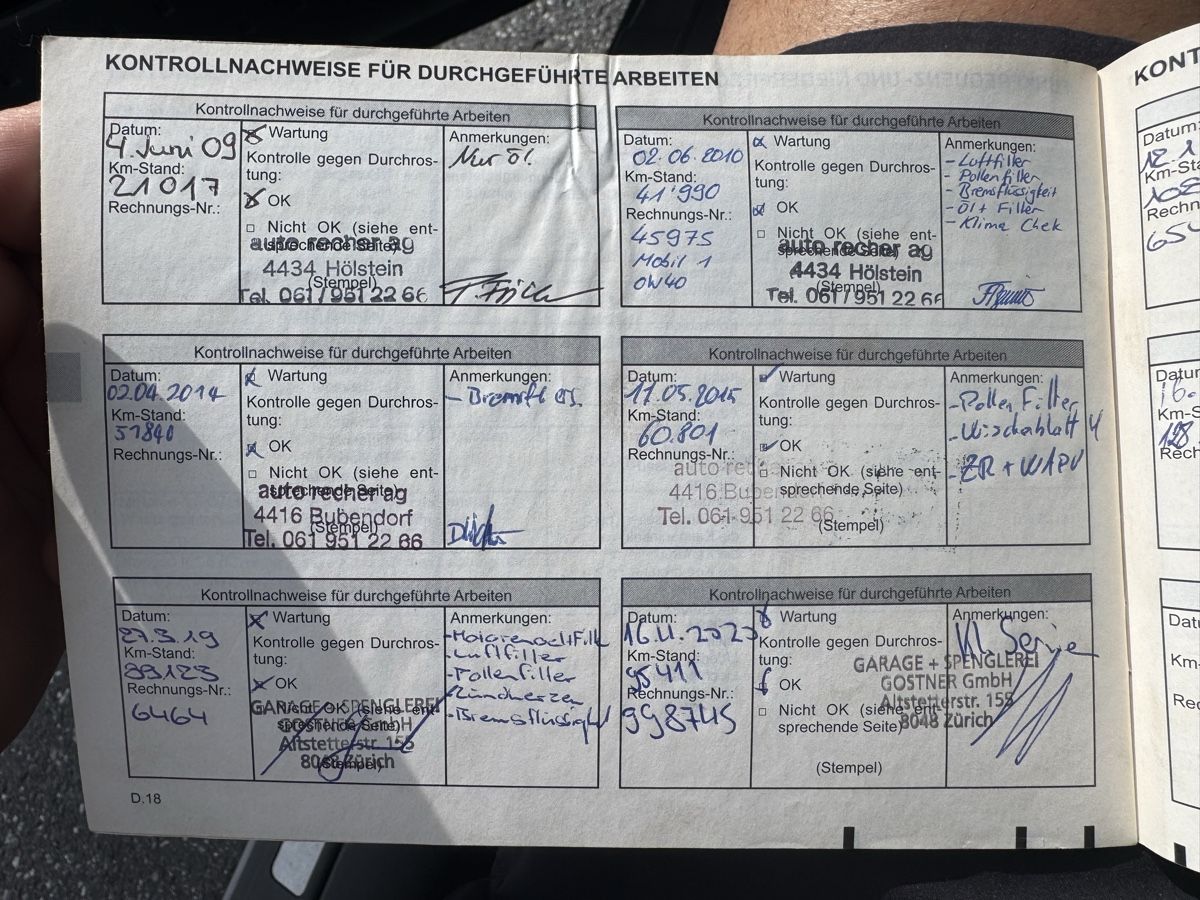 KONTROLLNACHWEISE FÜR DURCHGEFÜHRTE ARBEITEN
Kontrollnachweise für durchgeführte Arbeiten
Datum:
4. Juni 09
Km-Stand:
21017
Rechnungs-Nr.:
Wartung
Kontrolle gegen Durchros-
tung:
OK
Nicht OK (siehe ent-
sprechende Seite)
auto recher ag
4434 Hölstein
(Stempel)
Tel. 061 / 951 22 66
Anmerkungen:
Nur Öl.
Kontrollnachweise für durchgeführte Arbeiten
Datum:
02.06.2010
Km-Stand:
41'990
Rechnungs-Nr.:
45975
Mobil 1
0W40
Wartung
Kontrolle gegen Durchros-
tung:
OK
Nicht OK (siehe ent-
sprechende Seite)
auto recher ag
4434 Hölstein
(Stempel)
Tel. 061 / 951 22 66
Anmerkungen:
- Luftfilter
- Pollenfilter
- Bremsflüssigkeit
- Öl + Filter
- Klima Chek
Kontrollnachweise für durchgeführte Arbeiten
Datum:
02.04.2014
Km-Stand:
51840
Rechnungs-Nr.:
Wartung
Kontrolle gegen Durchros-
tung:
OK
Nicht OK (siehe ent-
sprechende Seite)
auto recher ag
4416 Bubendorf
(Stempel)
Tel. 061 951 22 66
Anmerkungen:
Kontrollnachweise für durchgeführte Arbeiten
Datum:
11.05.2015
Km-Stand:
60.801
Rechnungs-Nr.:
Wartung
Kontrolle gegen Durchros-
tung:
OK
Nicht OK (siehe ent-
sprechende Seite)
auto recher
4416 Bubendorf
Tel. 061 951 22 66
(Stempel)
Anmerkungen:
- Pollen Filter
- Wischerblatt 4
- ZR + WAPU
Kontrollnachweise für durchgeführte Arbeiten
Datum:
27.3.19
Km-Stand:
99123
Rechnungs-Nr.:
6464
Wartung
Kontrolle gegen Durchros-
tung:
OK
Nicht OK (siehe ent-
sprechende Seite)
GARAGE + SPENGLEREI
GOSTNER GmbH
Altstetterstr. 155
8048 Zürich
(Stempel)
Anmerkungen:
- Luftfilter
- Pollenfilter
- Zündkerzen
- Bremsflüssigkeit
Kontrollnachweise für durchgeführte Arbeiten
Datum:
16.11.2023
Km-Stand:
95411
Rechnungs-Nr.:
998745
Wartung
Kontrolle gegen Durchros-
tung:
OK
Nicht OK (siehe ent-
sprechende Seite)
(Stempel)
Anmerkungen:
Kl. Servie
GARAGE + SPENGLEREI
GOSTNER GmbH
Altstetterstr. 155
8048 Zürich
D.18